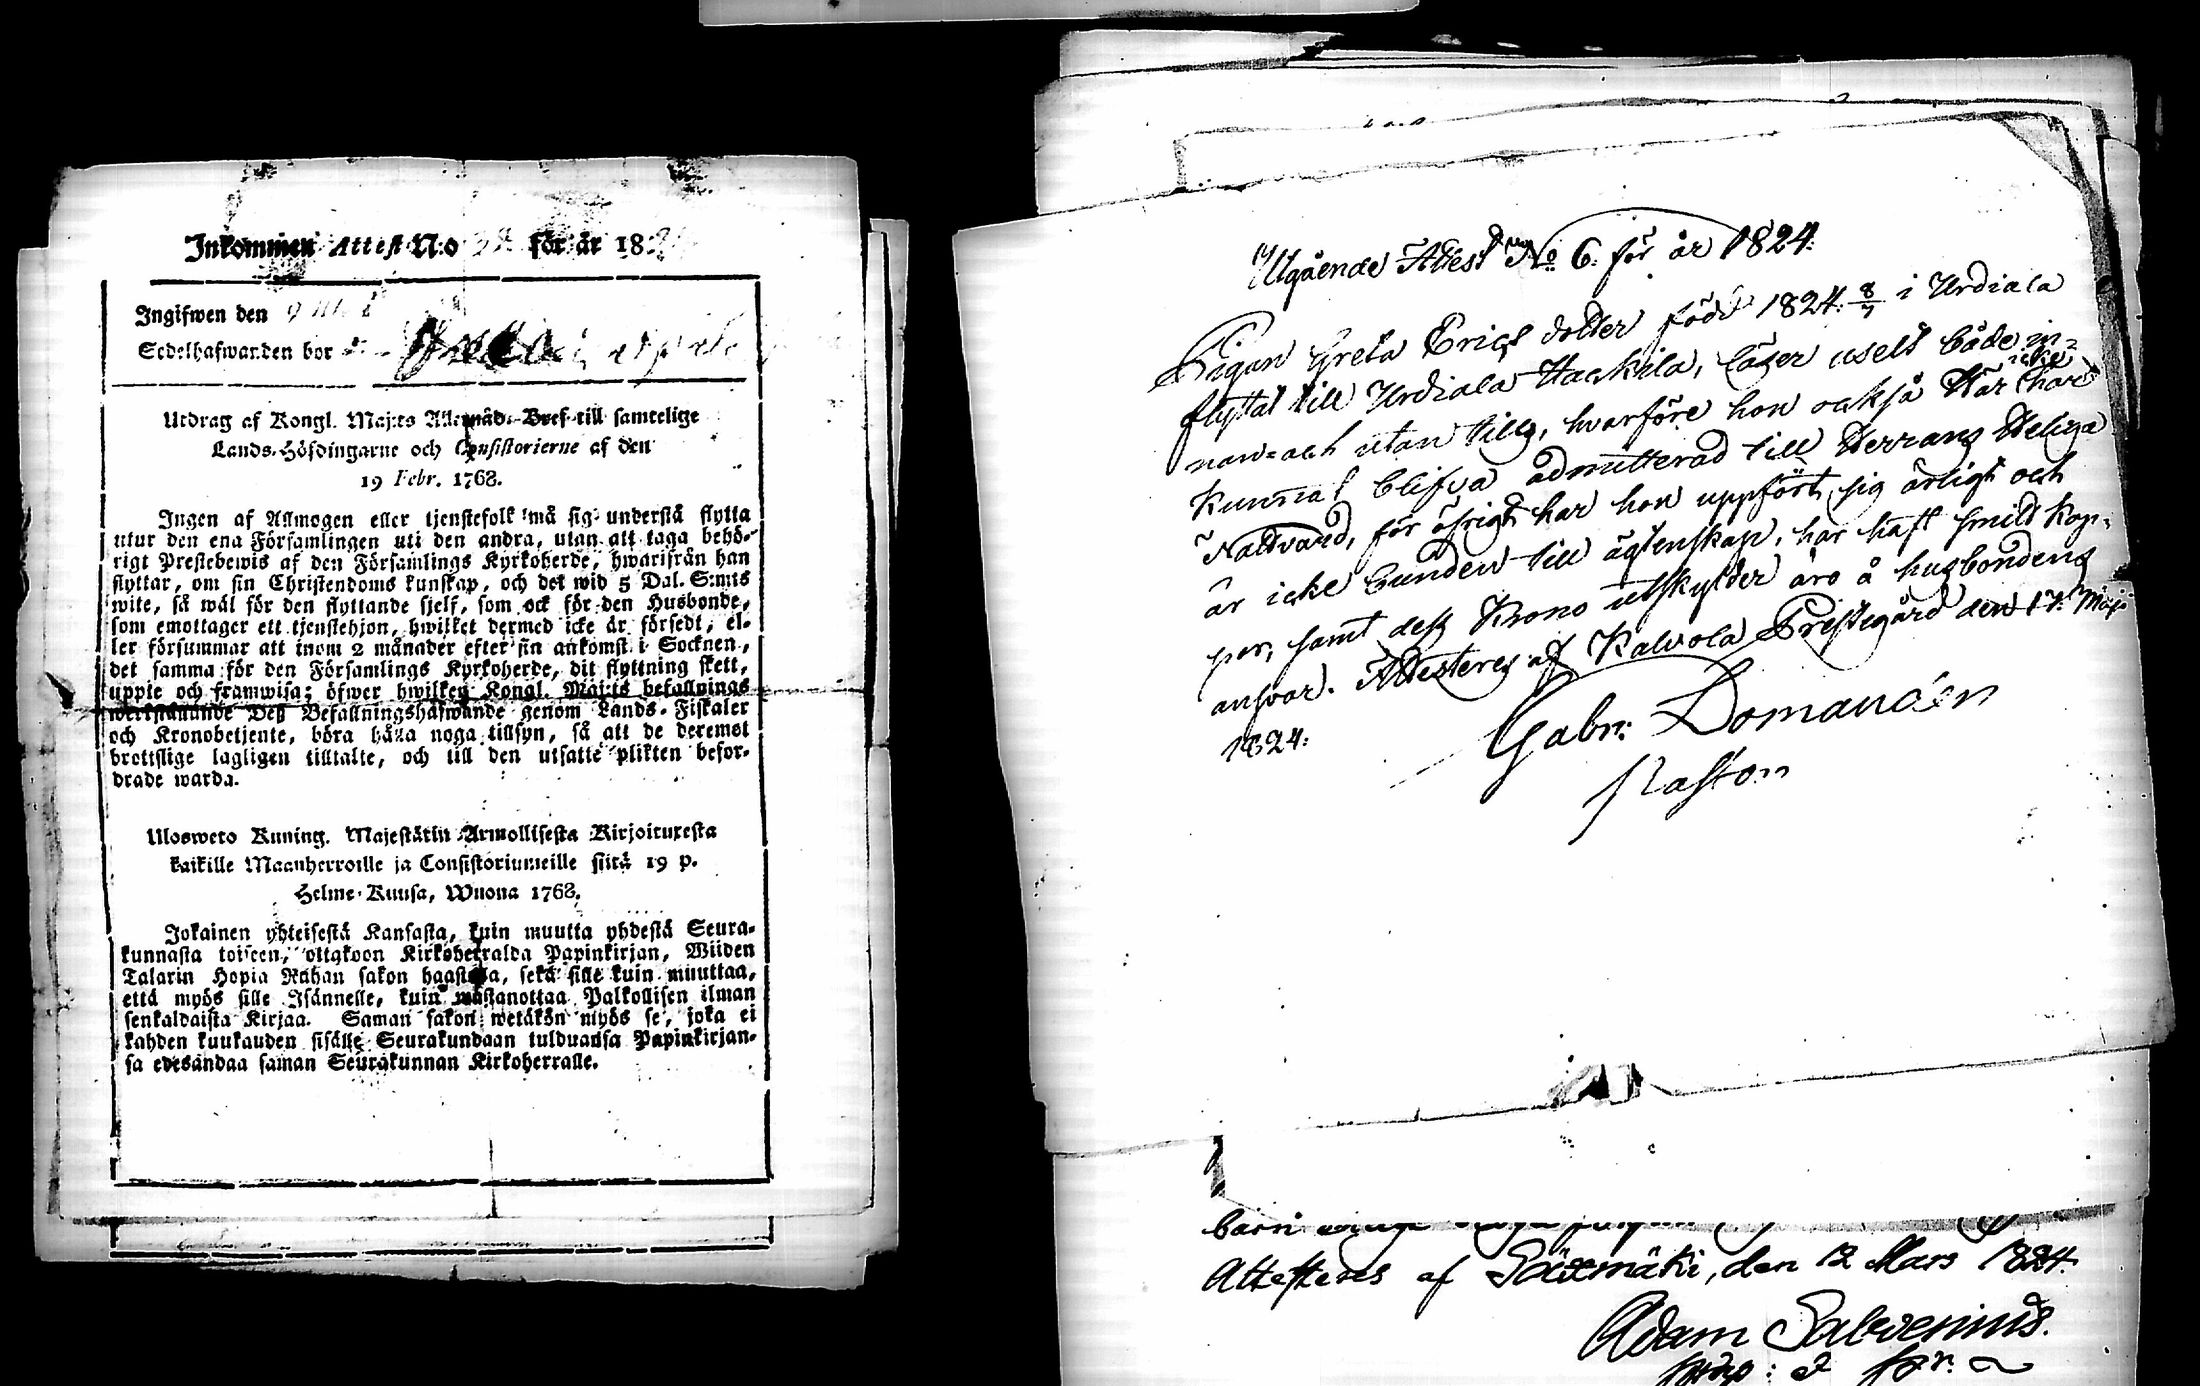 Inkommen Attest N:o för år 18
Ingifwen den 9
Sedelhafwanden bor
Utdrag af Kongl. Maj:ts Allernåd. Bref till samtelige
Lands-Höfdingarne och Consistorierne af den
19 Febr. 1768.
Ingen af Allmogen eller tjenstefolk må sig understå flytta
utur den ena Församlingen uti den andra, utan att taga behö-
rigt Prestebewis af den Församlings Kyrkoherde, hwarifrån han
flyttar, om sin Christendoms kunskap, och det wid 5 Dal. S:mts
wite, så wäl för den flyttande sjelf, som ock för den Husbonde,
som emottager ett tjenstehjon, hwilket dermed icke är försedt, el-
ler försummar att inom 2 månader efter sin ankomst i Socknen,
det samma för den Församlings Kyrkoherde, dit flyttning skett,
uppte och framwisa; öfwer hwilken Kongl. Maj:ts befallnings
werkställande Deß Befallningshafwande genom Lands-Fiskaler
och Kronobetjente, böra hålla noga tillsyn, så att de deremot
brottslige lagligen tilltalte, och till den utsatte plikten befor-
drade warda.
Ulosweto Kuning. Majestätin Armollisesta Kirjoituxesta
kaikille Maanherroille ja Consistoriumeille siitä 19 p.
Helme-Kuusa, Wuona 1768.
Jokainen yhteisestä Kansasta, kuin muutta yhdestä Seura-
kunnasta toiseen, ottakoon Kirkoherralda Papinkirjan, Wiiden
Talarin Hopia Rahan sakon haastolla, sekä sille kuin muuttaa,
että myös sille Isännelle, kuin wastanottaa Palkollisen ilman
senkaldaista Kirjaa. Saman sakon wetäkön myös se, joka ei
kahden kuukauden sisälle Seurakundaan tulduansa Papinkirjan-
sa edesandaa saman Seurakunnan Kirkoherralle.
Utgående Attest No 6. för år 1824.
Pigan Greta Ericsdotter född 1824 8/7 i Urdiala
flyttat till Urdiala Hackila, läser uselt både in-
nan- och utan till, hvarföre hon också här icke har
kunnat blifva admitterad till Herrans Heliga
Nattvard, för öfrigt har hon uppfört sig ärligt och
är icke bunden till ägtenskap, har haft smitt kop-
por, samt deß Krono utskylder äro å husbondens
ansvar. Attesteres af Kalvola Prestegård den 17. Maji
1824.
Gabr. Domancén
Pastor
barn
Attesteres af Sääxmäki, den 12 Mars 1824.
Adam Salvenius.